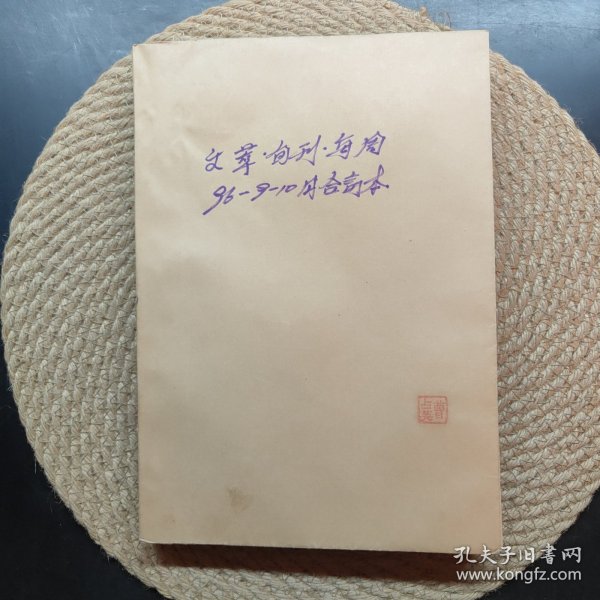 文萃·旬刊·每周
96-9-10月合订本
孔夫子旧書网
www.kongfz.com